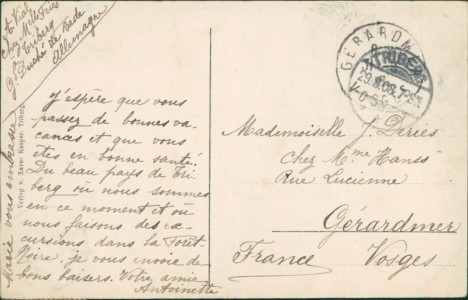 Chez Mlle Fries
Triberg
Gd Duché de Bade
Allemagne
J'espère que vous
passez de bonnes va-
cances et que vous
êtes en bonne santé.
Du beau pays de Tri
berg où nous sommes
en ce moment et où
nous faisons des ex-
cursions dans la Forêt
Noire, je vous envoie de
bons baisers. Votre amie
Antoinette
Marie vous embrasse
Verlag v. Xaver Kasper, Triberg.
GERARDM
TRIBERG
29.8.08.
Mademoiselle J. Deries
Chez Mme Hanss
Rue Lucienne
Gérardmer
France Vosges